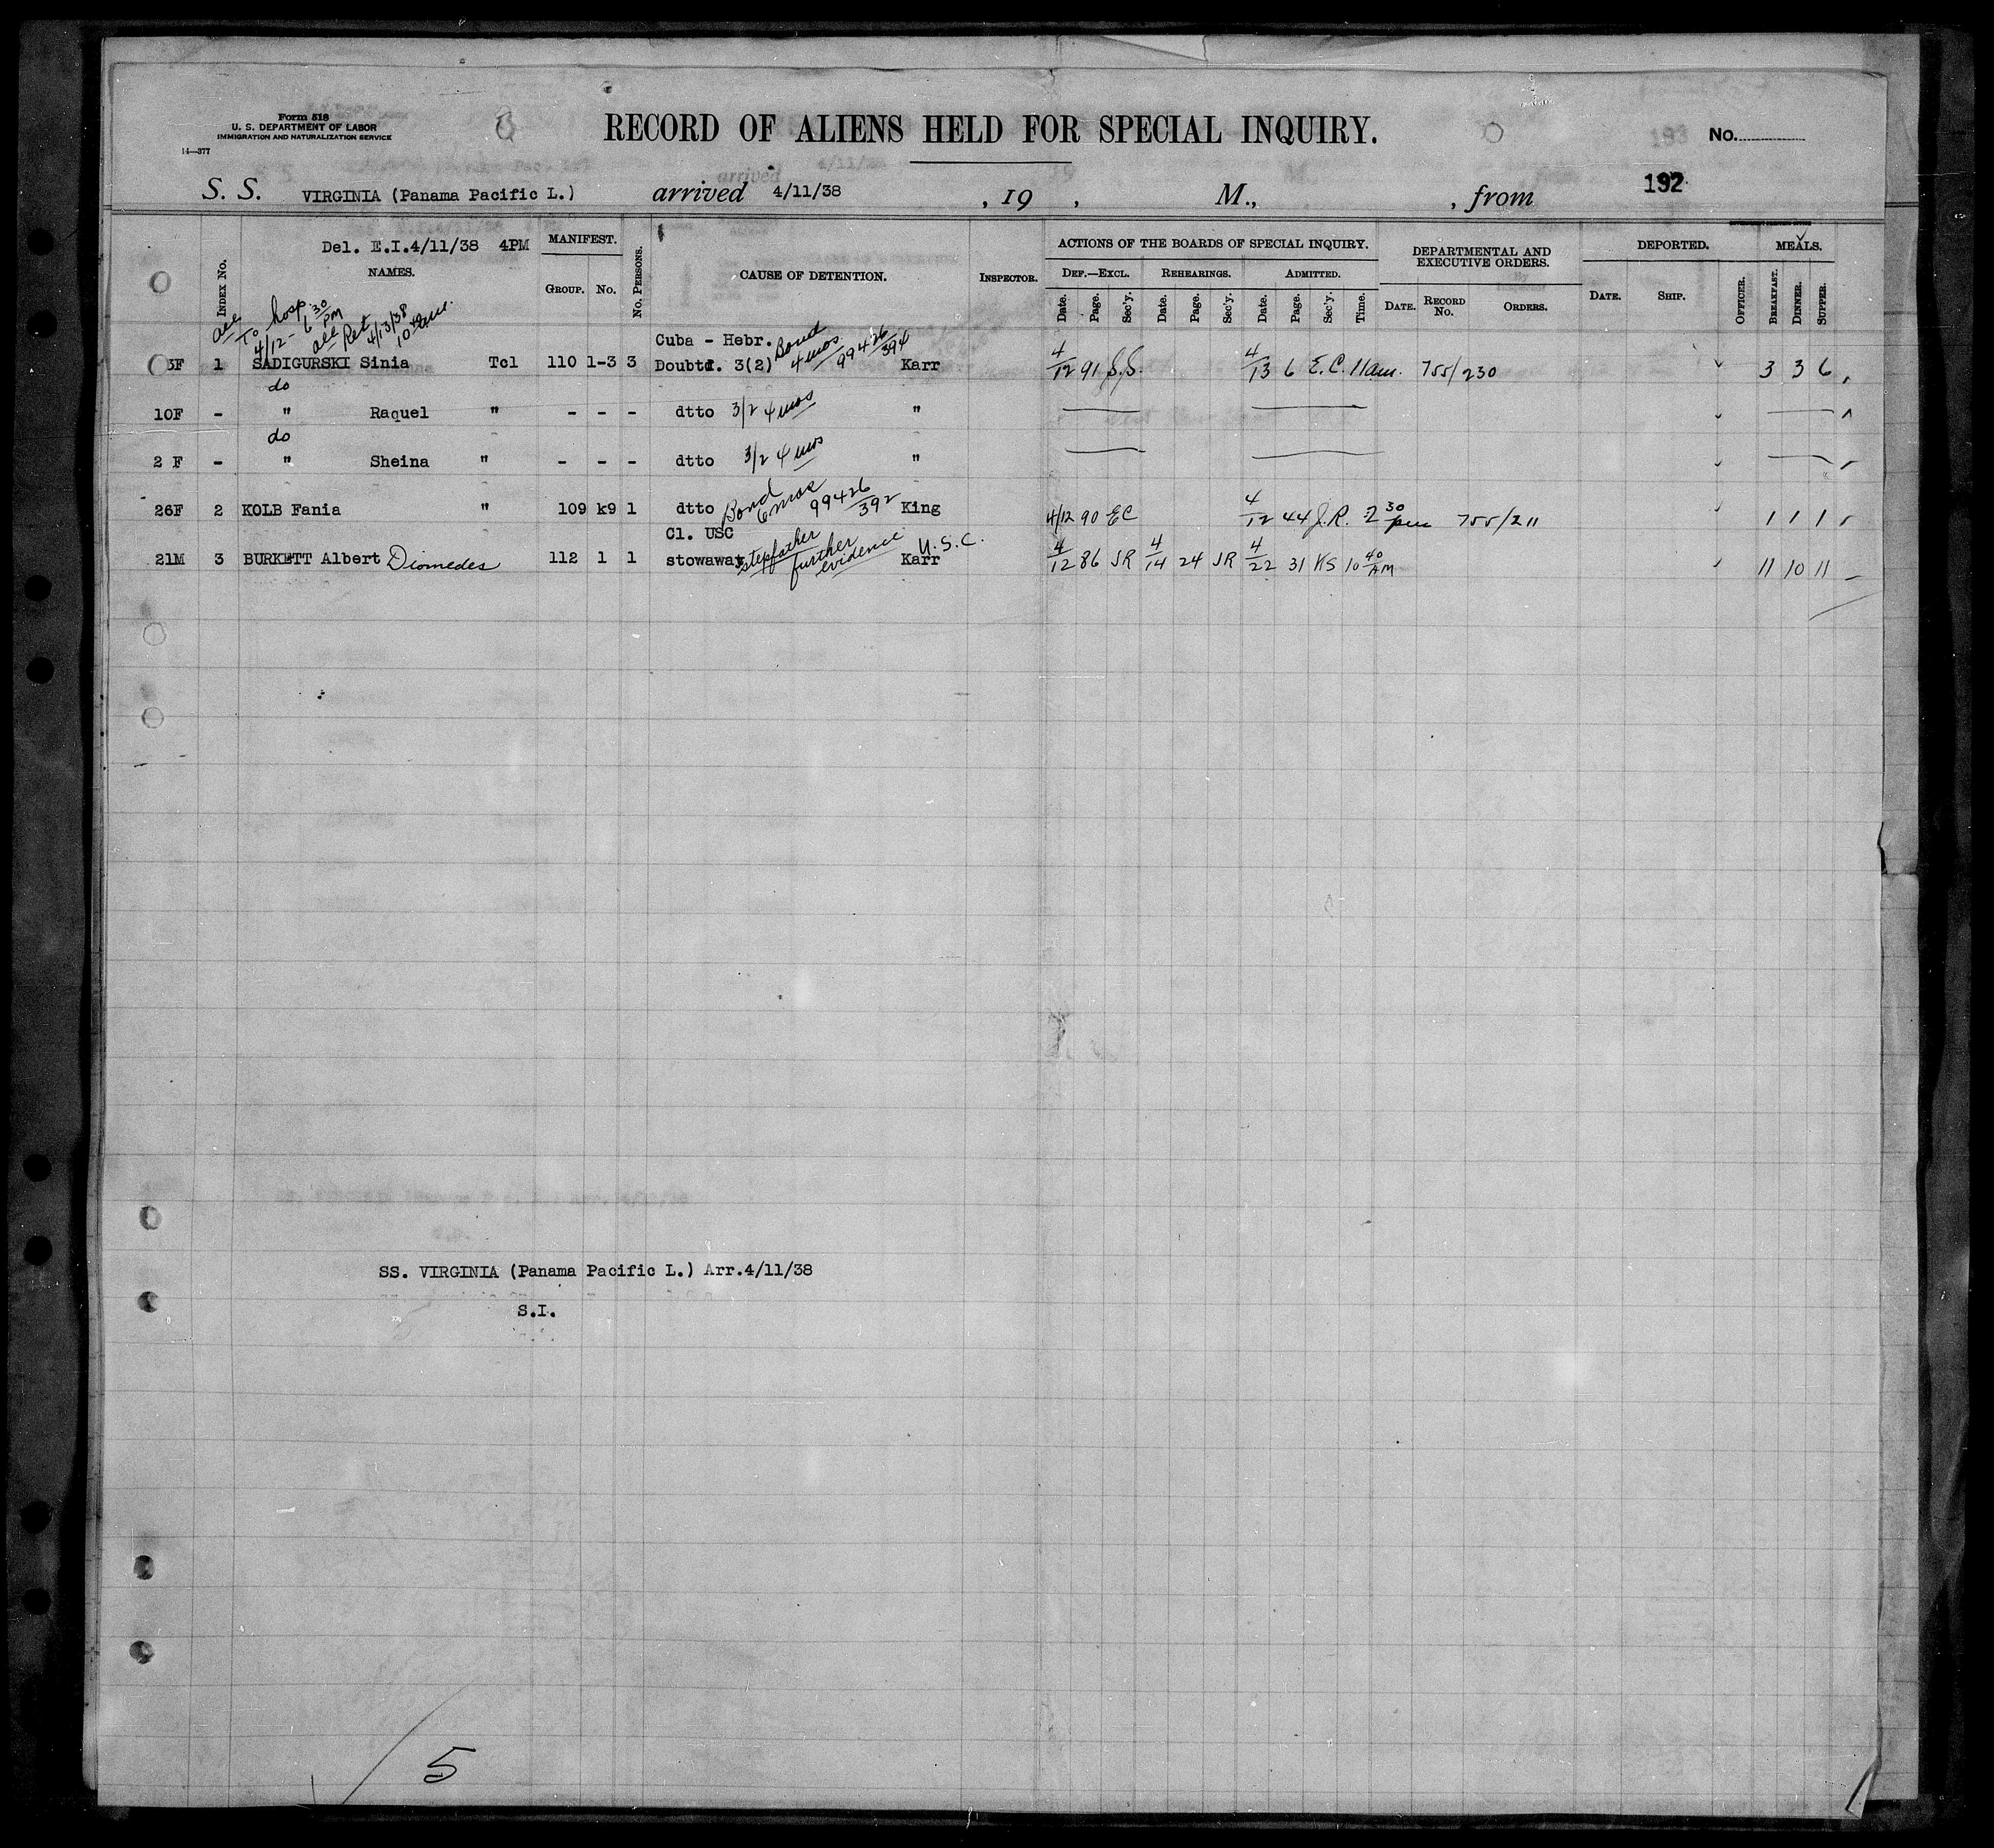 Form 518
U. S. DEPARTMENT OF LABOR
IMMIGRATION AND NATURALIZATION SERVICE
14—377
RECORD OF ALIENS HELD FOR SPECIAL INQUIRY.
No.
192
S. S. VIRGINIA (Panama Pacific L.) arrived 4/11/38 , 19 , M., , from
Del. E.I.4/11/38 4PM MANIFEST. ACTIONS OF THE BOARDS OF SPECIAL INQUIRY. DEPARTMENTAL AND EXECUTIVE ORDERS. DEPORTED. MEALS.
INDEX No. NAMES. GROUP. No. No. PERSONS. CAUSE OF DETENTION. INSPECTOR. DEF.—EXCL. REHEARINGS. ADMITTED.
Date. Page. Sec'y. Date. Page. Sec'y. Date. Page. Sec'y. Time. DATE. RECORD No. ORDERS. DATE. SHIP. OFFICER. BREAKFAST. DINNER. SUPPER.
all To hosp. 4/12 - 6 30 PM all Ret 4/13/38
Cuba - Hebr. Bond
1 SADIGURSKI Sinia Tcl 110 1-3 3 Doubtd. 3(2) 4 mos 99426/394 Karr 4/12 91 S.S. 4/13 6 E.C. 11am. 755/230 3 3 6
do
10F - " Raquel " - - - dtto 3/2 4 mos "
do
2 F - " Sheina " - - - dtto 3/2 4 mos "
26F 2 KOLB Fania " 109 k9 1 dtto Bond 6 mos 99426/392 King 4/12 90 EC 4/12 44 J.R. 2 30 pm 755/211 1 1 1
Cl. USC U.S.C.
21M 3 BURKETT Albert Diomedes 112 1 1 stowaway stepfather further evidence Karr 4/12 86 SR 4/14 24 SR 4/22 31 KS 10 40 AM 11 10 11
SS. VIRGINIA (Panama Pacific L.) Arr.4/11/38
S.I.
5